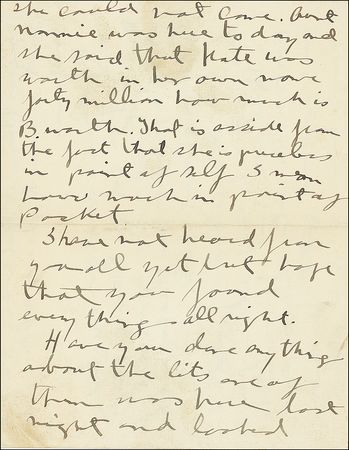 she could not come. Aunt
Nannie was here to day and
she said that Kate was
worth in her own name
forty million how much is
B. worth. That is asside from
the fact that she is priceless
in point of self I mean
how much in point of
Pocket.
I have not heard from
you all yet but hope
that you found
everything all right.
Have you done anything
about the lits one of
them was here last
night and looked